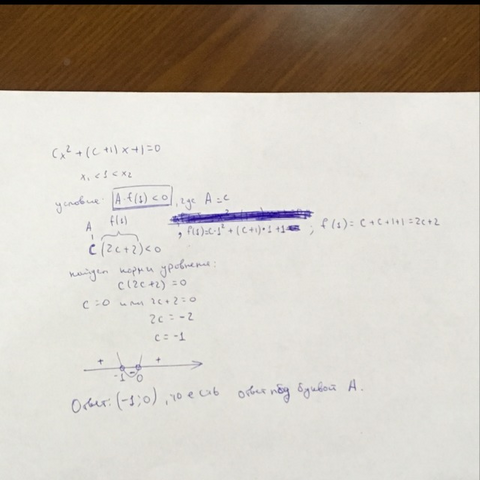 Cx² + (C+1)x+1=0
x₁ < 1 < x₂
условие: A·f(1)<0, где A=c
A f(1)
, f(1)=c·1²+(c+1)·1+1 ; f(1)=c+c+1+1=2c+2
C(2c+2)<0
найдем корни уравнения:
c(2c+2)=0
c=0 или 2c+2=0
2c=-2
c=-1
+ - +
-1 0
Ответ: (-1;0), то есть ответ под буквой А.